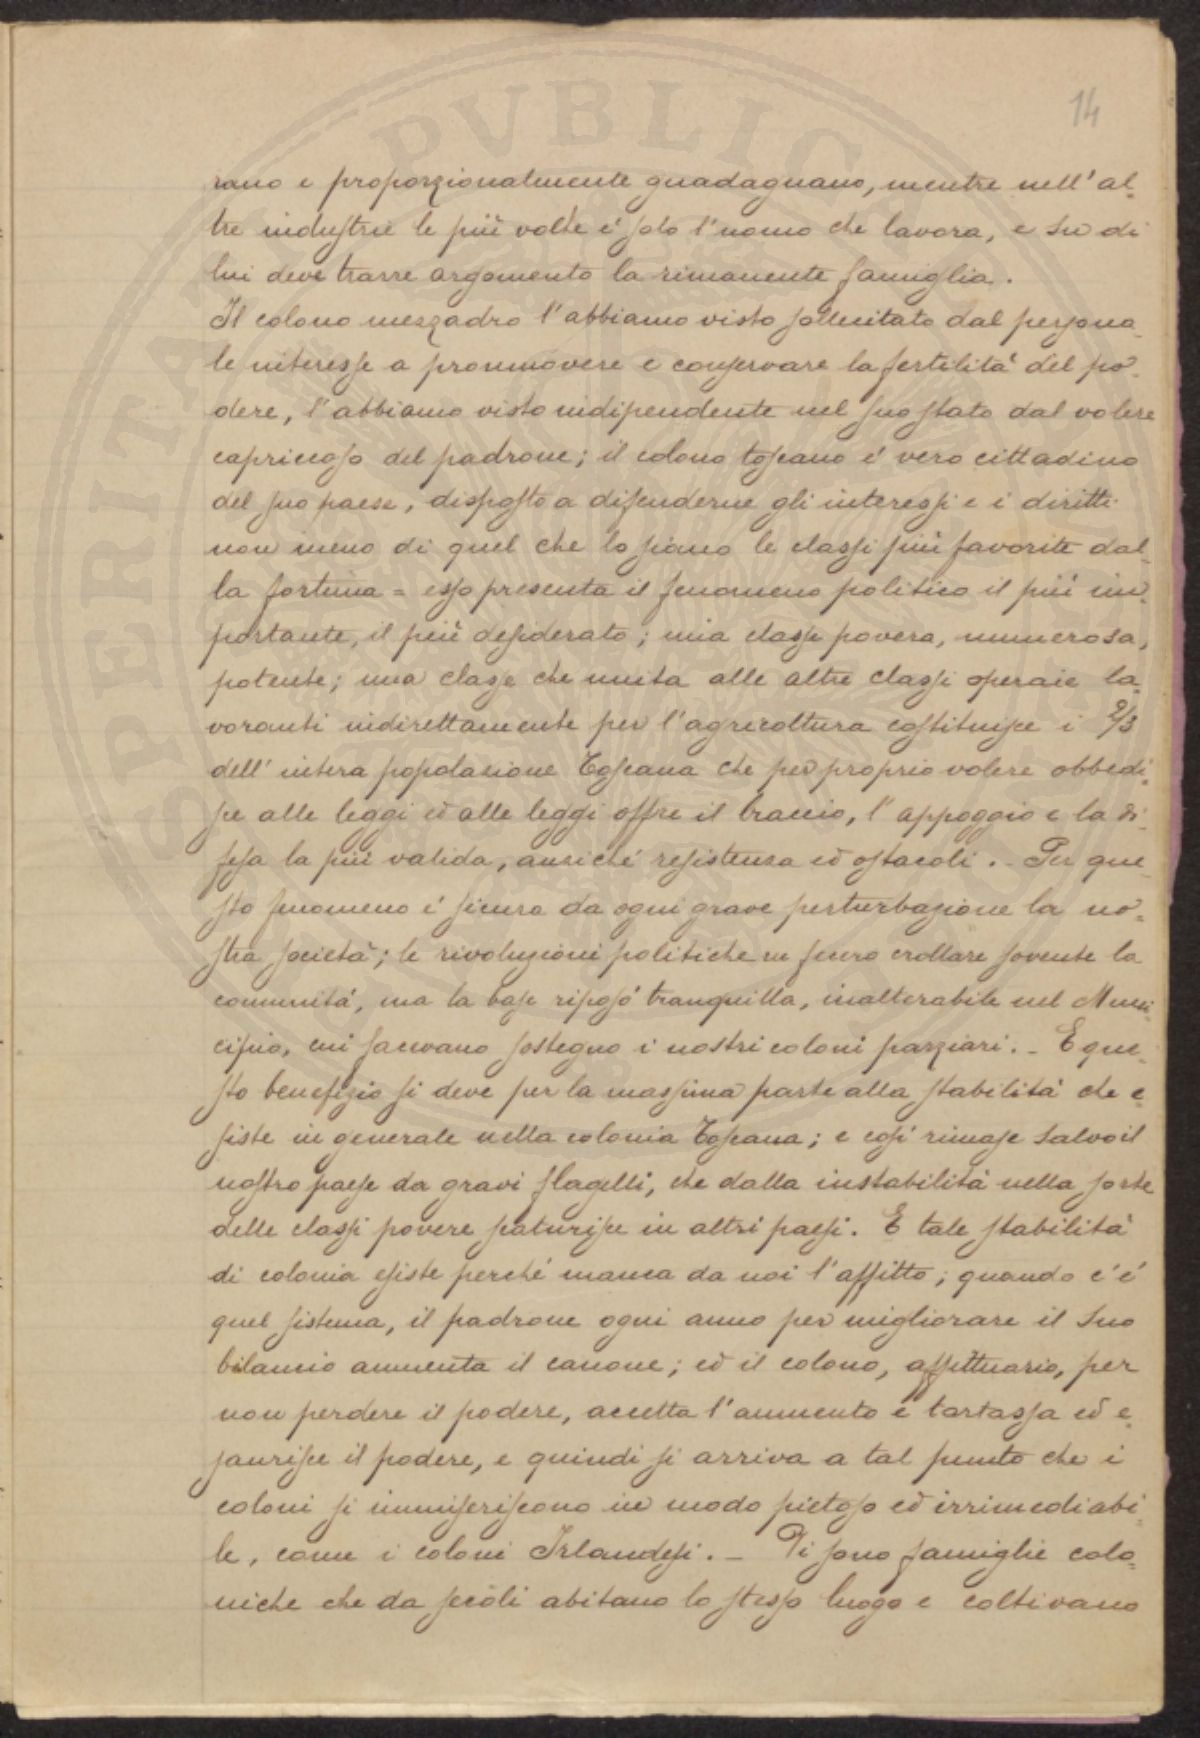 14
rano e proporzionalmente guadagnano, mentre nell'al-
tre industrie le più volte è solo l'uomo che lavora, e su di
lui deve trarre argomento la rimanente famiglia.
Il colono mezzadro l'abbiamo visto sollecitato dal persona-
le interesse a promuovere e conservare la fertilità del po-
dere, l'abbiamo visto indipendente nel suo stato dal volere
capriccoso del padrone; il colono toscano è vero cittadino
del suo paese, disposto a difenderne gli interessi e i diritti
non meno di quel che lo siano le classi più favorite dal-
la fortuna = esso presenta il fenomeno politico il più im-
portante, il più desiderato; una classe povera, numerosa,
potente; una classe che unita alle altre classi operaie la-
voranti indirettamente per l'agricoltura costituisce i 2/3
dell'intera popolazione Toscana che per proprio volere obbedi-
sce alle leggi ed alle leggi offre il braccio, l'appoggio e la di-
fesa la più valida, anziché resistenza ed ostacoli. - Per que-
sto fenomeno è sicura da ogni grave perturbazione la no-
stra società; le rivoluzioni politiche ne fecero crollare sovente la
comunità, ma la base riposò tranquilla, inalterabile nel Muni-
cipio, cui facevano sostegno i nostri coloni parziari. - E que-
sto benefizio si deve per la massima parte alla stabilità che e-
siste in generale nella colonia Toscana; e così rimase salvo il
nostro paese da gravi flagelli, che dalla instabilità nella sorte
delle classi povere scaturisce in altri paesi. E tale stabilità
di colonia esiste perché manca da noi l'affitto; quando c'é
quel sistema, il padrone ogni anno per migliorare il suo
bilancio aumenta il canone; ed il colono, affittuario, per
non perdere il podere, accetta l'aumento e tartassa ed e-
saurisce il podere, e quindi si arriva a tal punto che i
coloni si immiseriscono in modo pietoso ed irrimediabi-
le, come i coloni Irlandesi. - Vi sono famiglie colo-
niche che da secoli abitano lo stesso luogo e coltivano